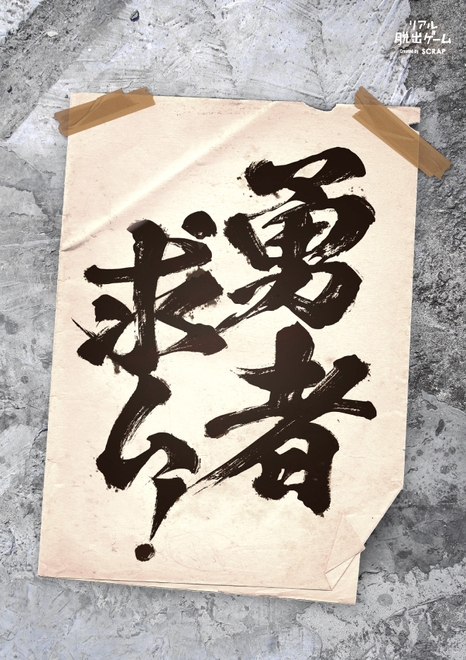 リアル
脱出ゲーム
Created by SCRAP
勇者
求ム!